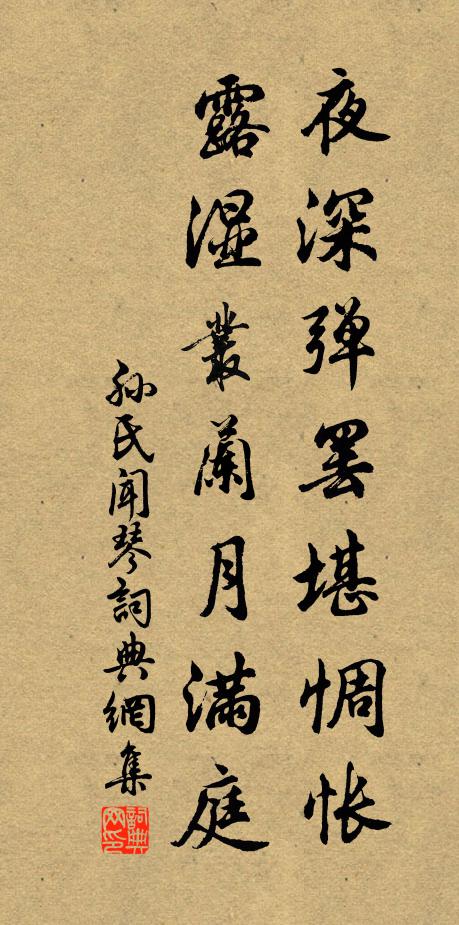 夜深弹罢堪惆怅
露湿丛兰月满庭
孙氏闻琴詞典網集
詞典网印